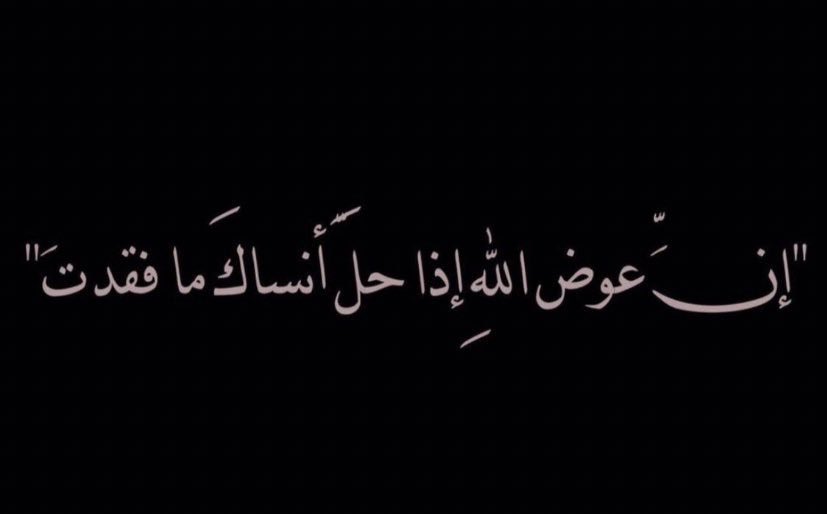 "إنَّ عوض اللهِ إذا حلَّ أنساكَ ما فقدتَ"